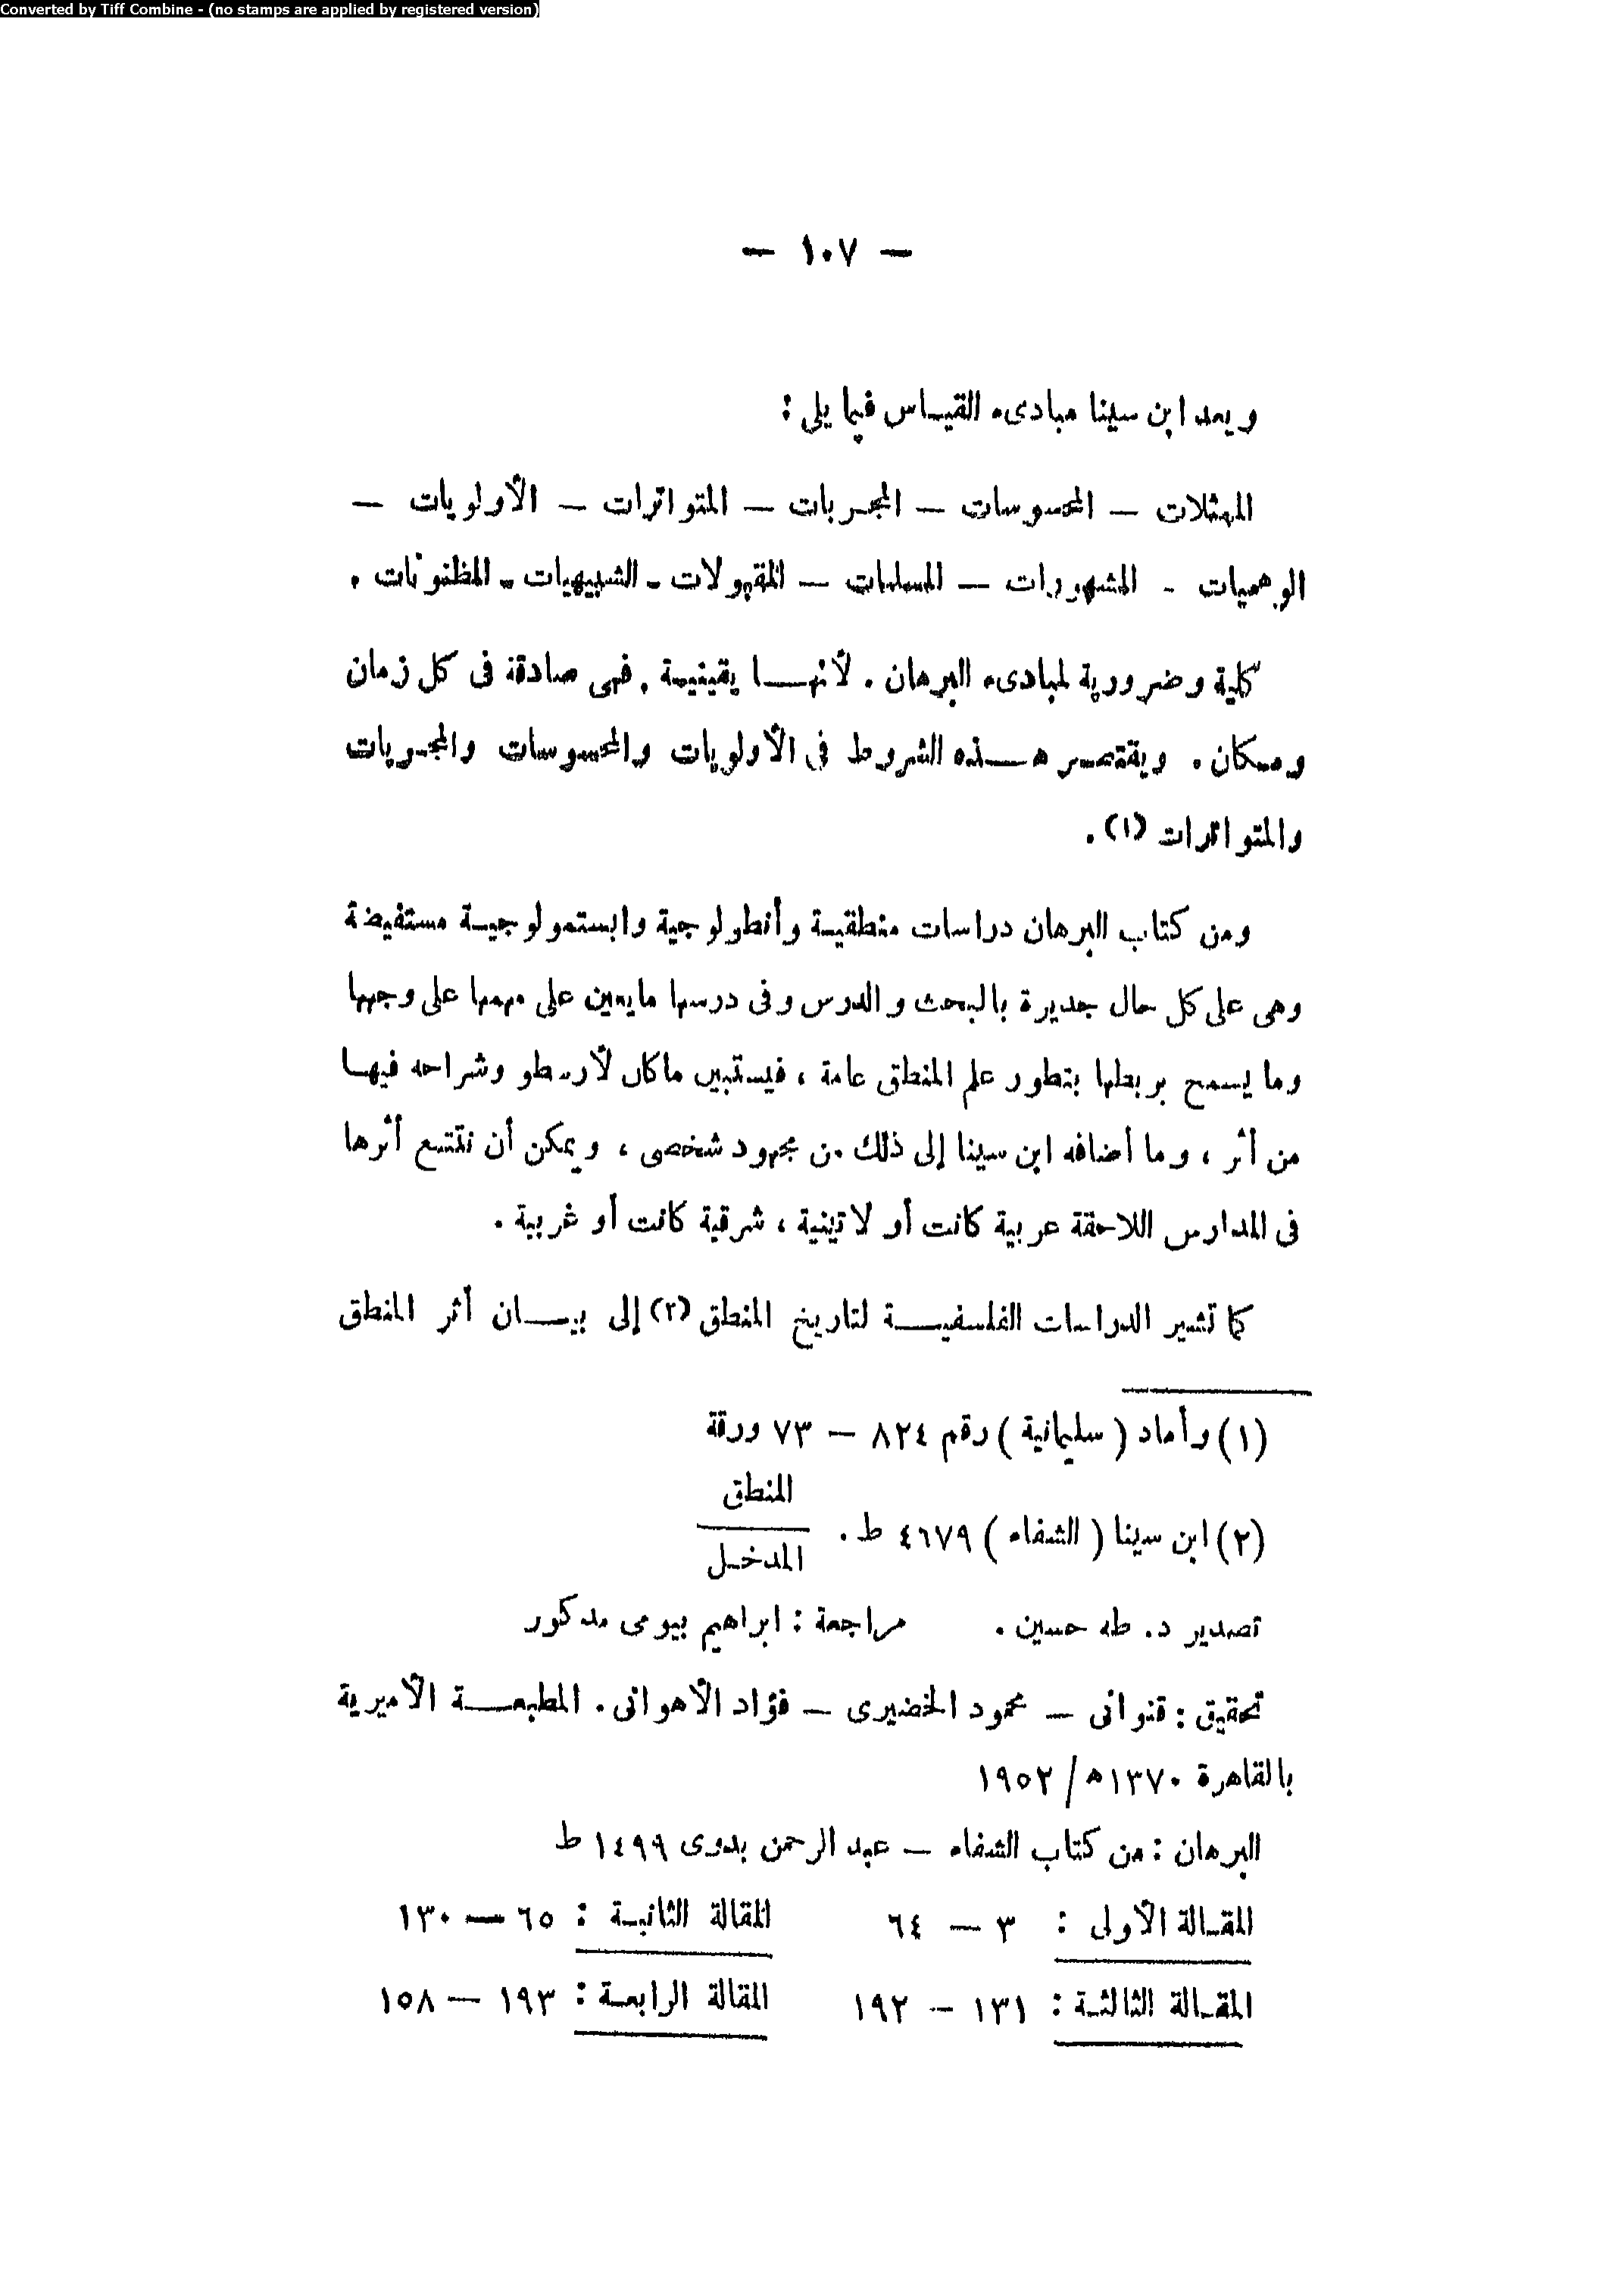 Converted by Tiff Combine - (no stamps are applied by registered version)
— ١٠٧ —
ويعد ابن سينا مبادىء القياس فيما يلى :
الممثلات — المحسوسات — المجربات — المتواترات — الأولويات —
الوهميات - المشهورات — المسلمات — المقبولات - الشبيهيات - المظنونات .
كلية وضرورية لمبادىء البرهان . لأنها يقينية . فهى صادقة فى كل زمان
ومكان . ويقتصر هذه الشروط فى الأولويات والمحسوسات والمجربات
والمتواترات (١) .
ومن كتاب البرهان دراسات منطقية وأنطولوجية وابستمولوجية مستفيضة
وهى على كل حال جديرة بالبحث والدرس وفى درسها ما يعين على مهمها على وجهها
وما يسمح بربطها بتطور علم المنطق عامة ، فيستبين ما كان لأرسطو وشراحه فيها
من أثر ، وما أضافه ابن سينا إلى ذلك من مجهود شخصى ، ويمكن أن نتتبع أثرها
فى المدارس اللاحقة عربية كانت أو لاتينية ، شرقية كانت أو غربية .
كما تشير الدراسات الفلسفية لتاريخ المنطق (٢) إلى بيان أثر المنطق
(١) وأماد ( سليمانية ) رقم ٨٢٤ — ٧٣ ورقة
(٢) ابن سينا ( الشفاء ) ٤٦٧٩ ط . المنطق
المدخل
تصدير د. طه حسين . مراجعة : ابراهيم بيومى مدكور
تحقيق : قنواتى — محمود الخضيرى — فؤاد الأهوانى . المطبعة الأميرية
بالقاهرة ١٣٧٠ه / ١٩٥٢
البرهان : من كتاب الشفاء — عبد الرحمن بدوى ١٤٩٩ ط
المقالة الأولى : ٣ — ٦٤ المقالة الثانية : ٦٥ — ١٣٠
المقالة الثالثة : ١٣١ — ١٩٢ المقالة الرابعة : ١٩٣ — ١٥٨